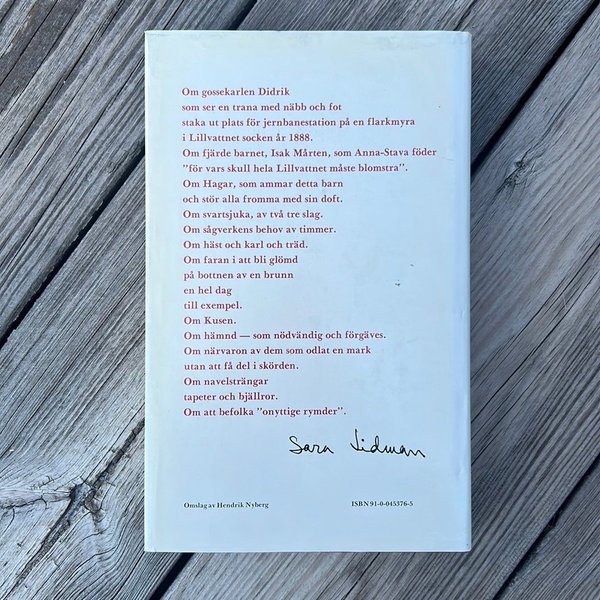 Om gossekarlen Didrik
som ser en trana med näbb och fot
staka ut plats för jernbanestation på en flarkmyra
i Lillvattnet socken år 1888.
Om fjärde barnet, Isak Mårten, som Anna-Stava föder
”för vars skull hela Lillvattnet måste blomstra”.
Om Hagar, som ammar detta barn
och stör alla fromma med sin doft.
Om svartsjuka, av två tre slag.
Om sågverkens behov av timmer.
Om häst och karl och träd.
Om faran i att bli glömd
på bottnen av en brunn
en hel dag
till exempel.
Om Kusen.
Om hämnd — som nödvändig och förgäves.
Om närvaron av dem som odlat en mark
utan att få del i skörden.
Om navelsträngar
tapeter och bjällror.
Om att befolka ”onyttige rymder”.
Sara Lidman
Omslag av Hendrik Nyberg ISBN 91-0-045376-5